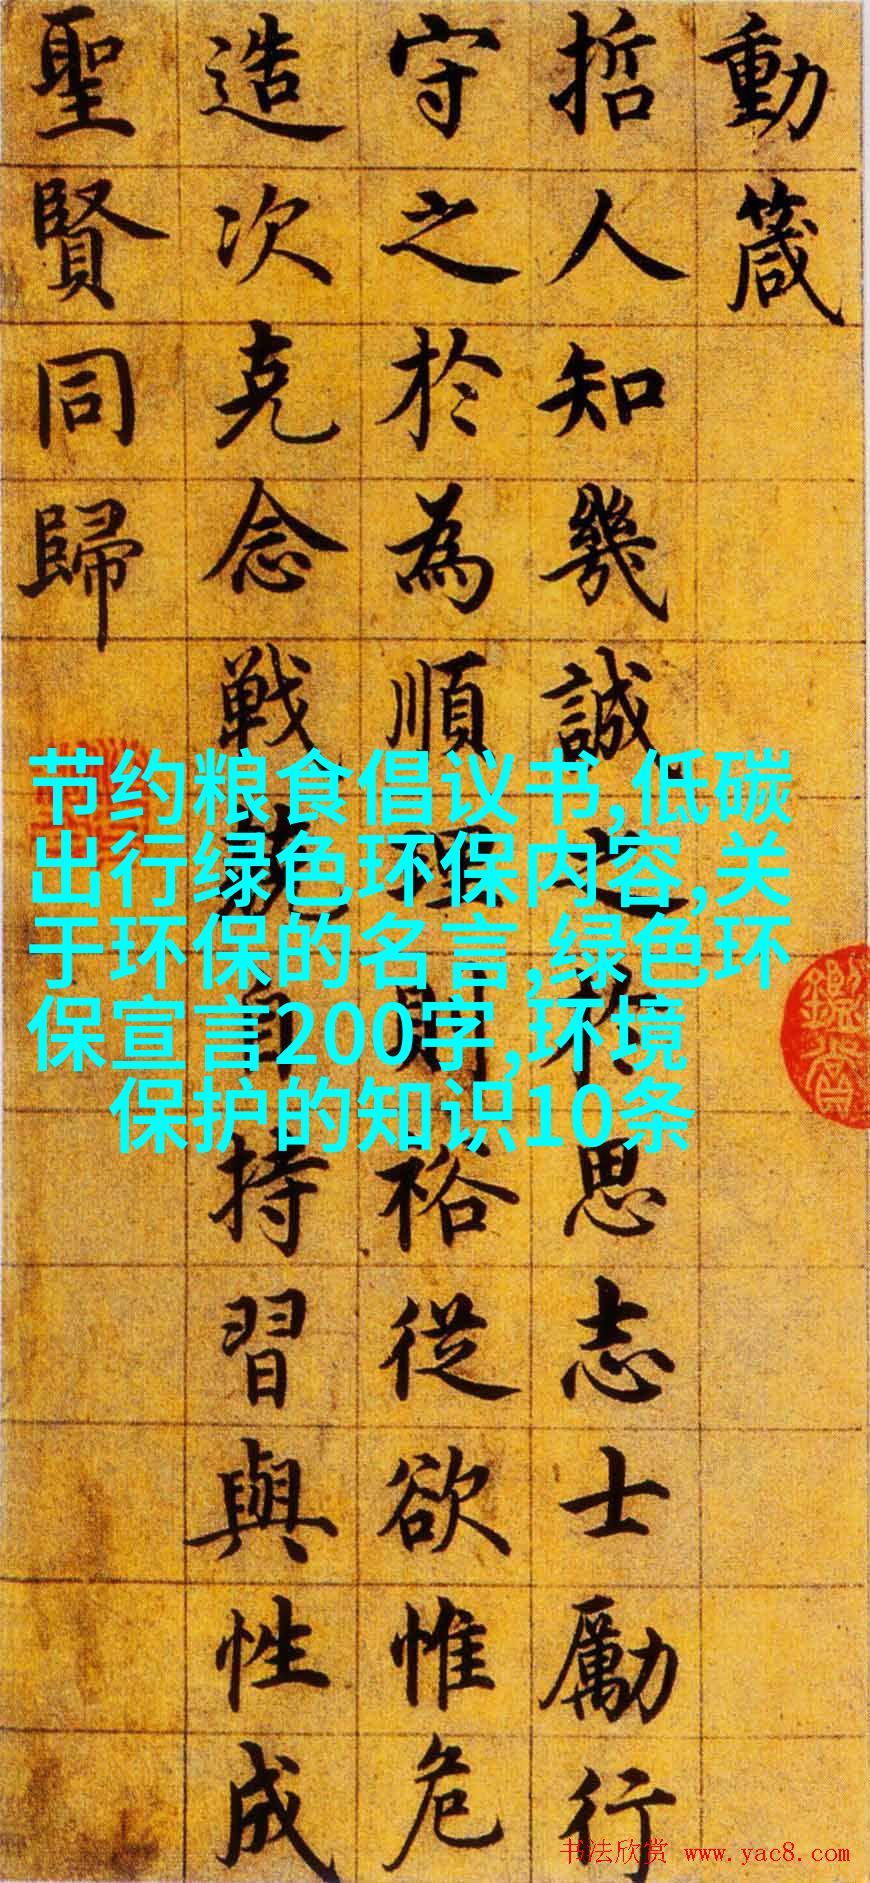 動箴
哲人知幾誠之於思志士勵行
守之於為順理則裕從欲惟危
造次克念戰兢自持習與性成
聖賢同歸
节约粮食倡议书,低碳
出行绿色环保内容,关
于环保的名言,绿色环
保宣言200字,环境
保护的知识10条
书法欣赏 www.yac8.com